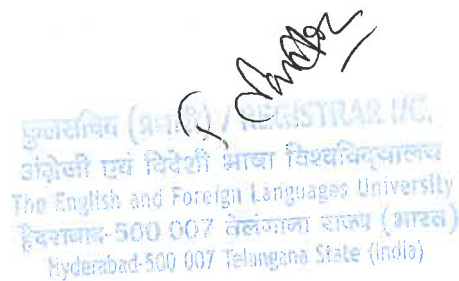 कुलसचिव (प्रभारी) / REGISTRAR I/C.
अंग्रेजी एवं विदेशी भाषा विश्वविद्यालय
The English and Foreign Languages University
हैदराबाद-500 007 तेलंगाना राज्य (भारत)
Hyderabad-500 007 Telangana State (India)